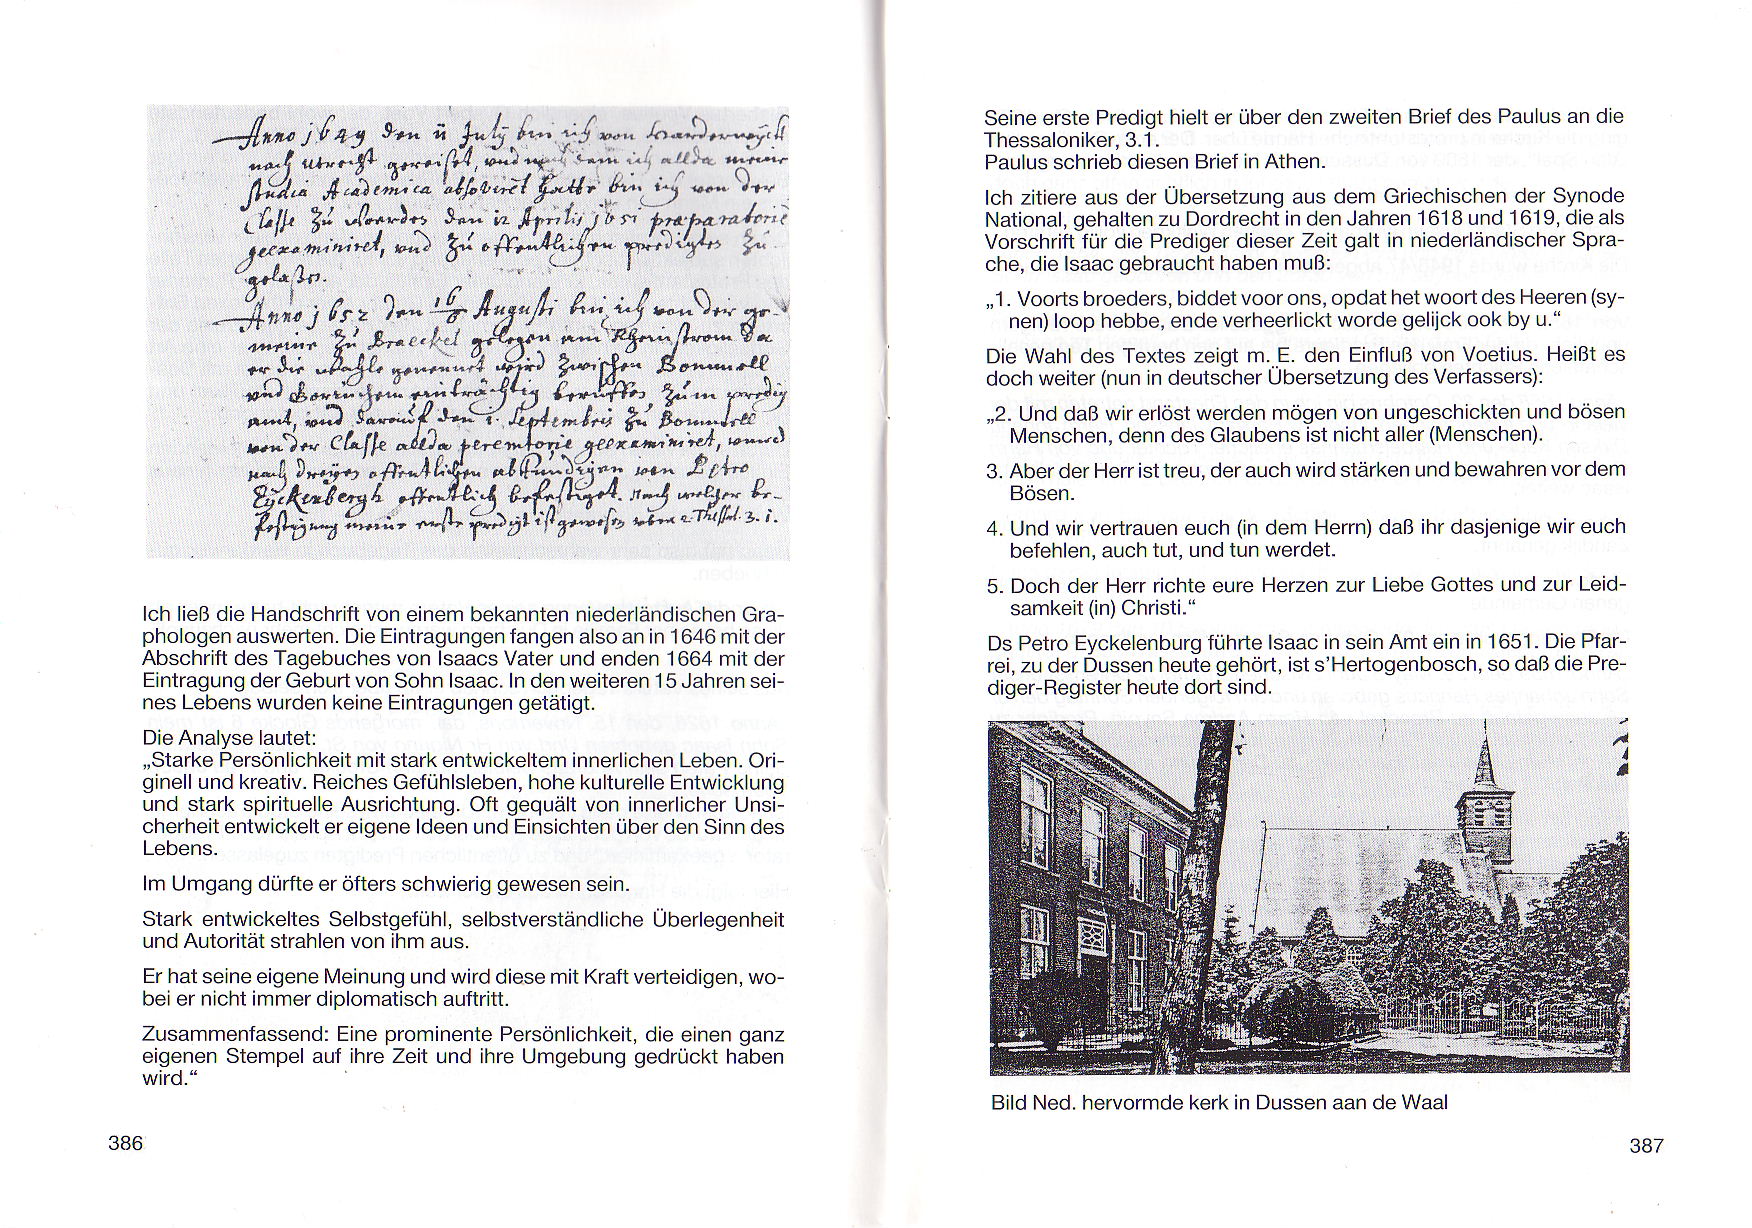 Anno 1649 den 11 July bin ich von Harderwyck
nach Utrecht gereiset, und nach dem ich allda meine
studia Academica absolviret hatte bin ich von der
Classe zu Woerden den 12 Aprilis 1651 præparatoriè
geexaminiret, und zu offentlichen predigten zu-
gelaßen.
Anno 1652 den 16/6 Augusti bin ich von der ge-
meine zu Braeckel gelegen am Rheinstrom da
er die Wahle genennet wird zwischen Bommell
und Gorinchem einträchtig beruffen zum predig
amt, und darauf den 1. Septembris zu Bommell
von der Classe allda peremtorie geexaminiret, unnd
nach dreyen offentlichen abkundigen von Petro
Eyckenbergh offentlich befestiget. Nach welcher be-
festigung meine erste predigt ist gewesen uber 2. Thessal. 3. 1.
Ich ließ die Handschrift von einem bekannten niederländischen Gra-
phologen auswerten. Die Eintragungen fangen also an in 1646 mit der
Abschrift des Tagebuches von Isaacs Vater und enden 1664 mit der
Eintragung der Geburt von Sohn Isaac. In den weiteren 15 Jahren sei-
nes Lebens wurden keine Eintragungen getätigt.
Die Analyse lautet:
„Starke Persönlichkeit mit stark entwickeltem innerlichen Leben. Ori-
ginell und kreativ. Reiches Gefühlsleben, hohe kulturelle Entwicklung
und stark spirituelle Ausrichtung. Oft gequält von innerlicher Unsi-
cherheit entwickelt er eigene Ideen und Einsichten über den Sinn des
Lebens.
Im Umgang dürfte er öfters schwierig gewesen sein.
Stark entwickeltes Selbstgefühl, selbstverständliche Überlegenheit
und Autorität strahlen von ihm aus.
Er hat seine eigene Meinung und wird diese mit Kraft verteidigen, wo-
bei er nicht immer diplomatisch auftritt.
Zusammenfassend: Eine prominente Persönlichkeit, die einen ganz
eigenen Stempel auf ihre Zeit und ihre Umgebung gedrückt haben
wird.“
386
Seine erste Predigt hielt er über den zweiten Brief des Paulus an die
Thessaloniker, 3.1.
Paulus schrieb diesen Brief in Athen.
Ich zitiere aus der Übersetzung aus dem Griechischen der Synode
National, gehalten zu Dordrecht in den Jahren 1618 und 1619, die als
Vorschrift für die Prediger dieser Zeit galt in niederländischer Spra-
che, die Isaac gebraucht haben muß:
„1. Voorts broeders, biddet voor ons, opdat het woort des Heeren (sy-
nen) loop hebbe, ende verheerlickt worde gelijck ook by u.“
Die Wahl des Textes zeigt m. E. den Einfluß von Voetius. Heißt es
doch weiter (nun in deutscher Übersetzung des Verfassers):
„2. Und daß wir erlöst werden mögen von ungeschickten und bösen
Menschen, denn des Glaubens ist nicht aller (Menschen).
3. Aber der Herr ist treu, der auch wird stärken und bewahren vor dem
Bösen.
4. Und wir vertrauen euch (in dem Herrn) daß ihr dasjenige wir euch
befehlen, auch tut, und tun werdet.
5. Doch der Herr richte eure Herzen zur Liebe Gottes und zur Leid-
samkeit (in) Christi.“
Ds Petro Eyckelenburg führte Isaac in sein Amt ein in 1651. Die Pfar-
rei, zu der Dussen heute gehört, ist s’Hertogenbosch, so daß die Pre-
diger-Register heute dort sind.
Bild Ned. hervormde kerk in Dussen aan de Waal
387